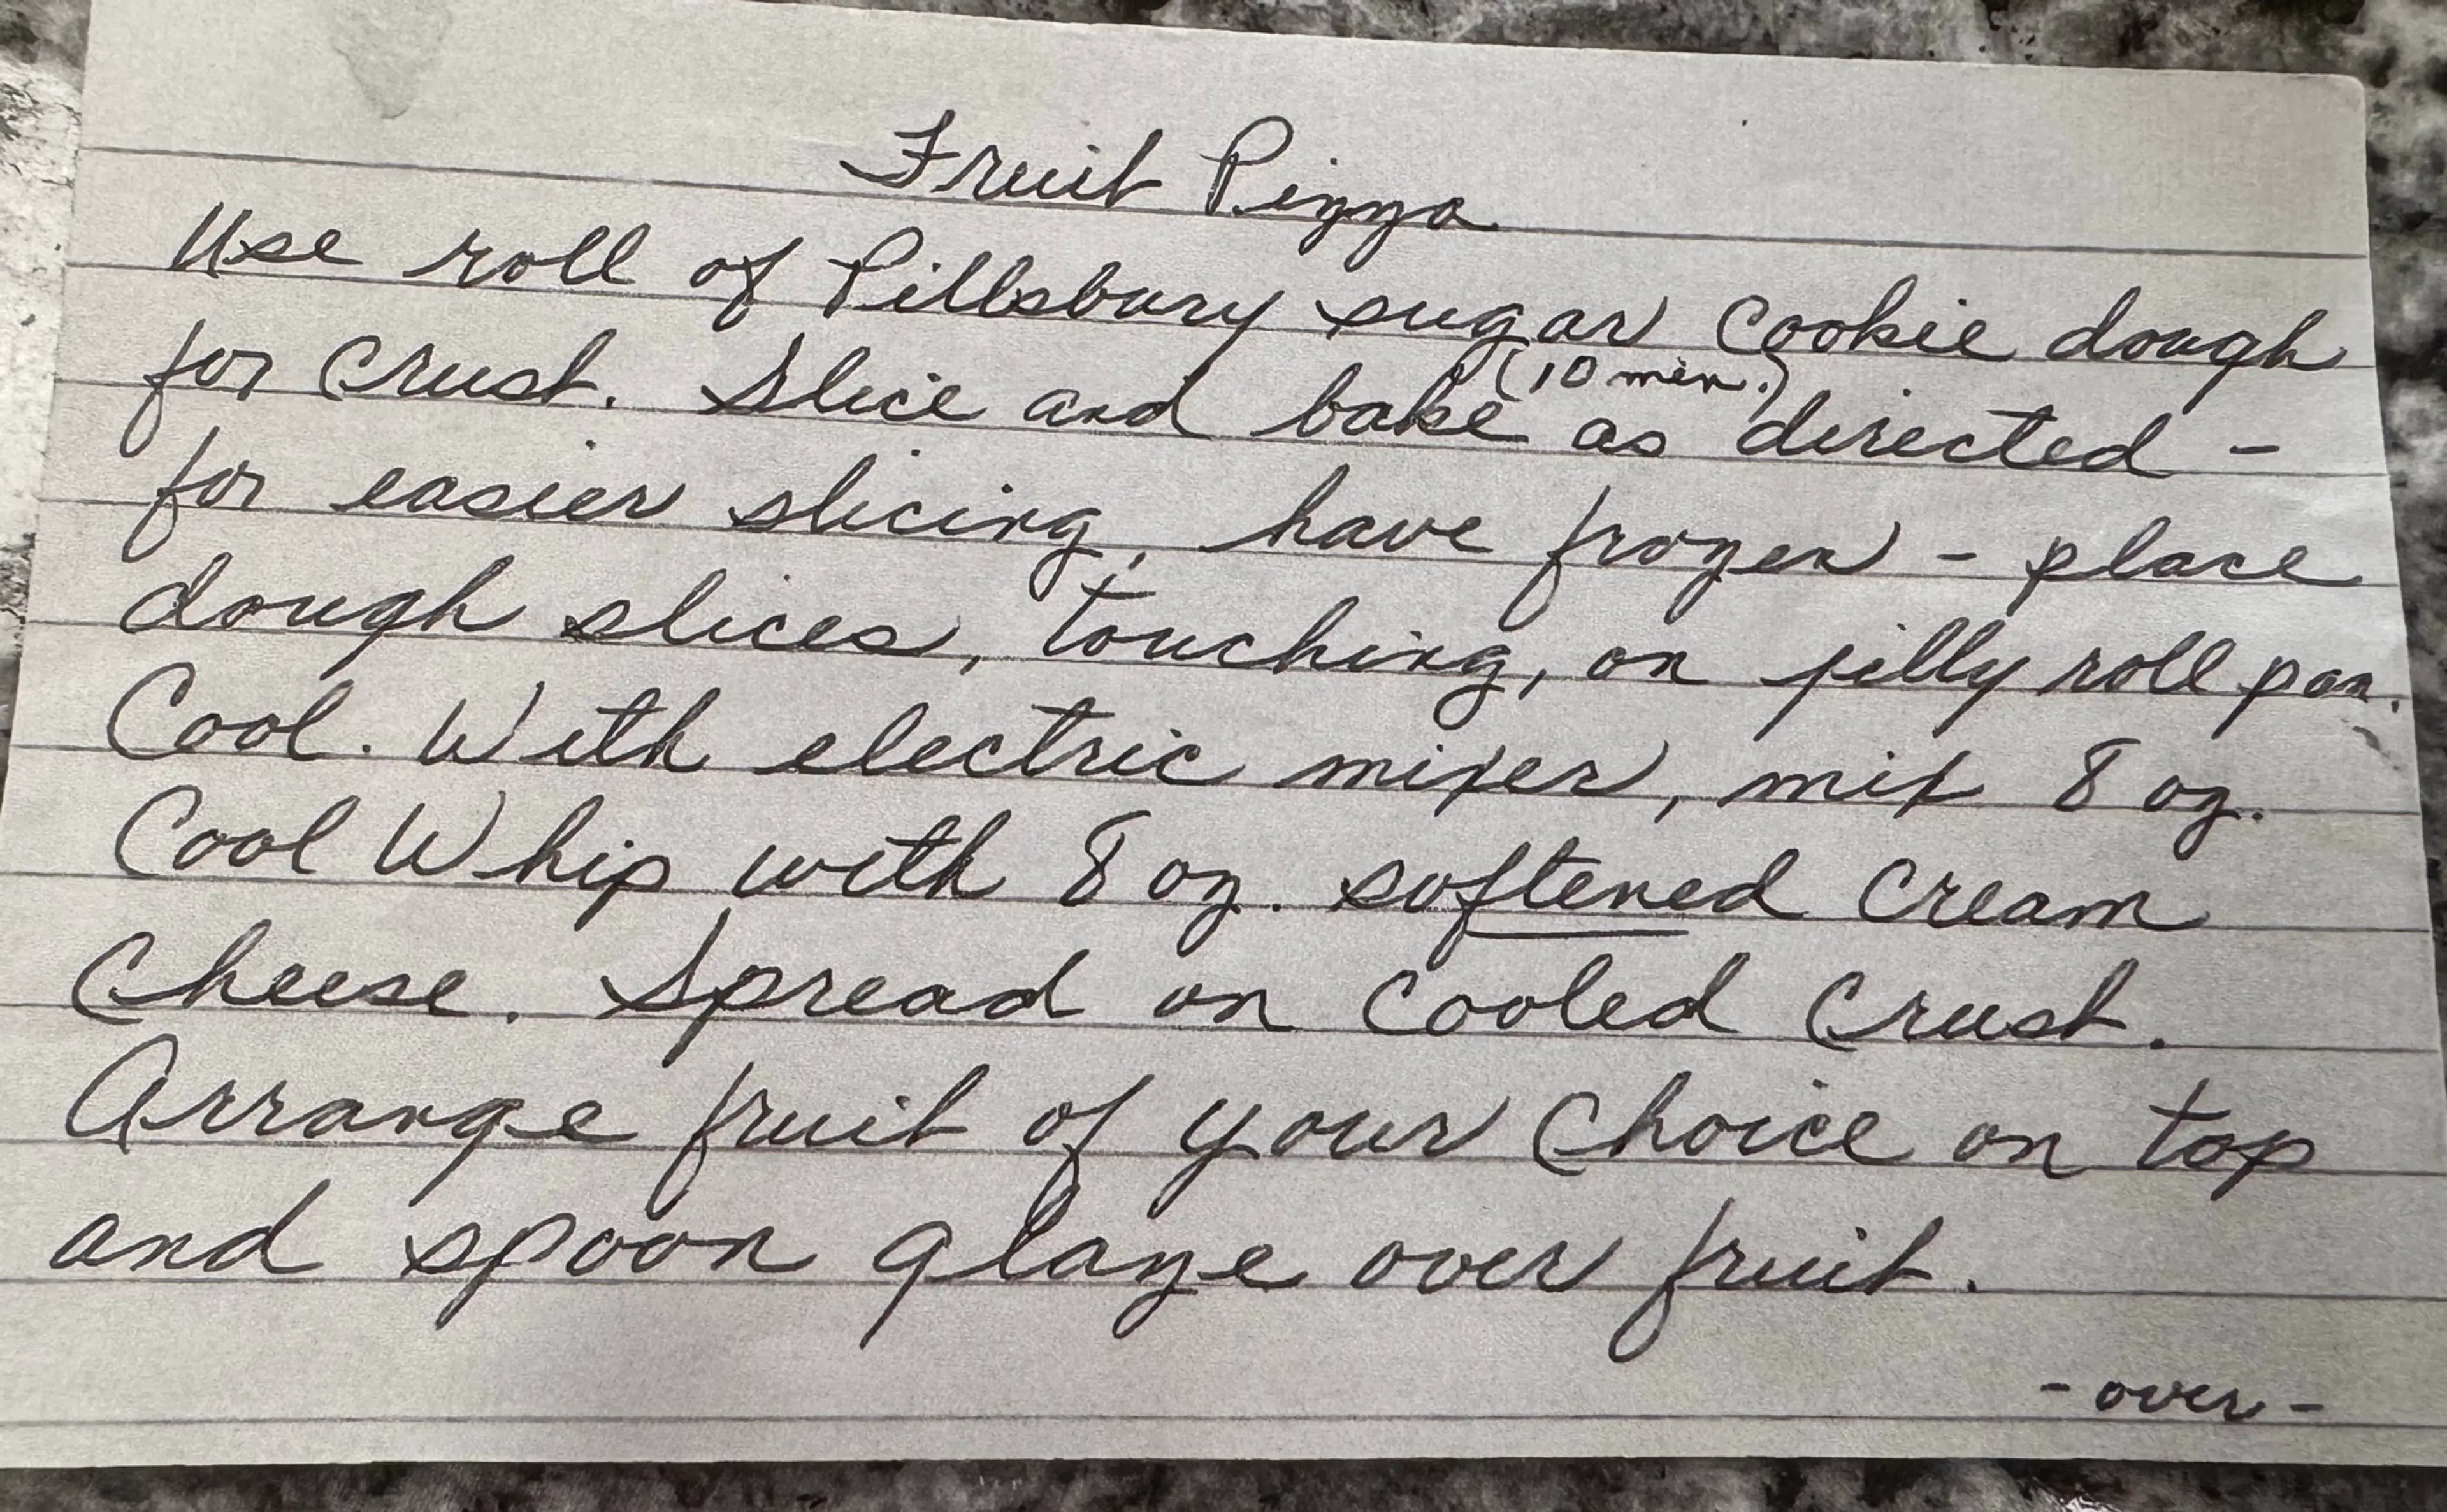 Fruit Pizza
Use roll of Pillsbury sugar cookie dough
for crust. Slice and bake (10 min.) as directed -
for easier slicing, have frozen - place
dough slices, touching, on jelly roll pan.
Cool. With electric mixer, mix 8 oz.
Cool Whip with 8 oz. softened cream
cheese. Spread on cooled crust.
Arrange fruit of your choice on top
and spoon glaze over fruit.
- over -